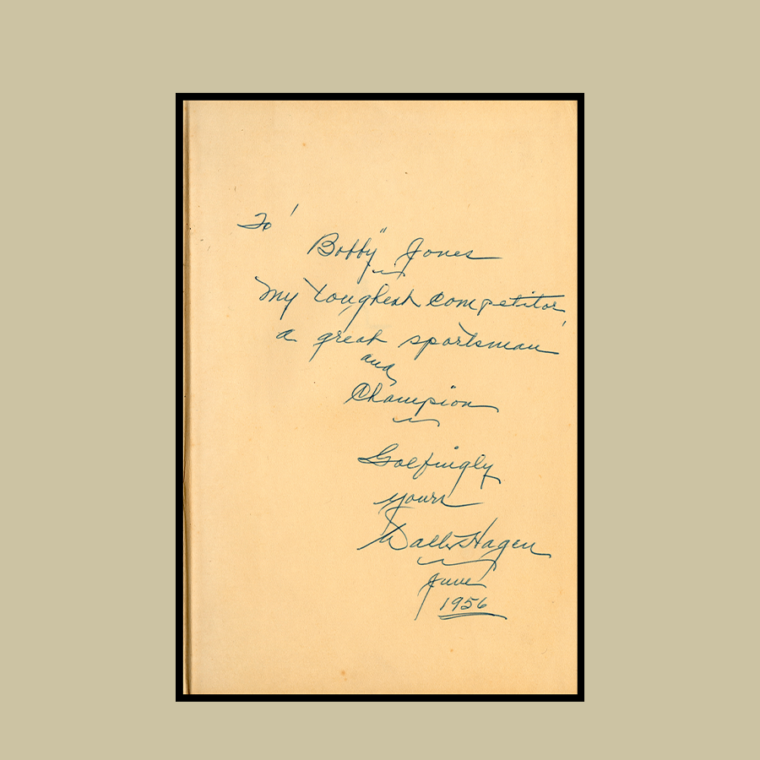 To'
"Bobby" Jones
My toughest competitor,
a great sportsman
and
Champion
Golfingly
yours
Walter Hagen
June
1956